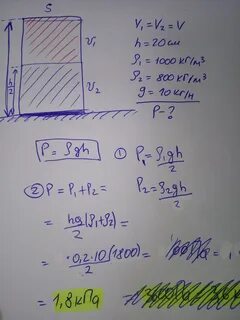 S
V₁
h/2
V₂
V₁ = V₂ = V
h = 20 cm
ρ₁ = 1000 кг/м³
ρ₂ = 800 кг/м³
g = 10 кг/н
P - ?
P = ρgh
① P₁ = ρ₁gh/2
② P = P₁ + P₂ =
P₂ = ρ₂gh/2
= hg/2 (ρ₁ + ρ₂) =
= 0,2·10(1800)/2 =
= 1,8 кПа